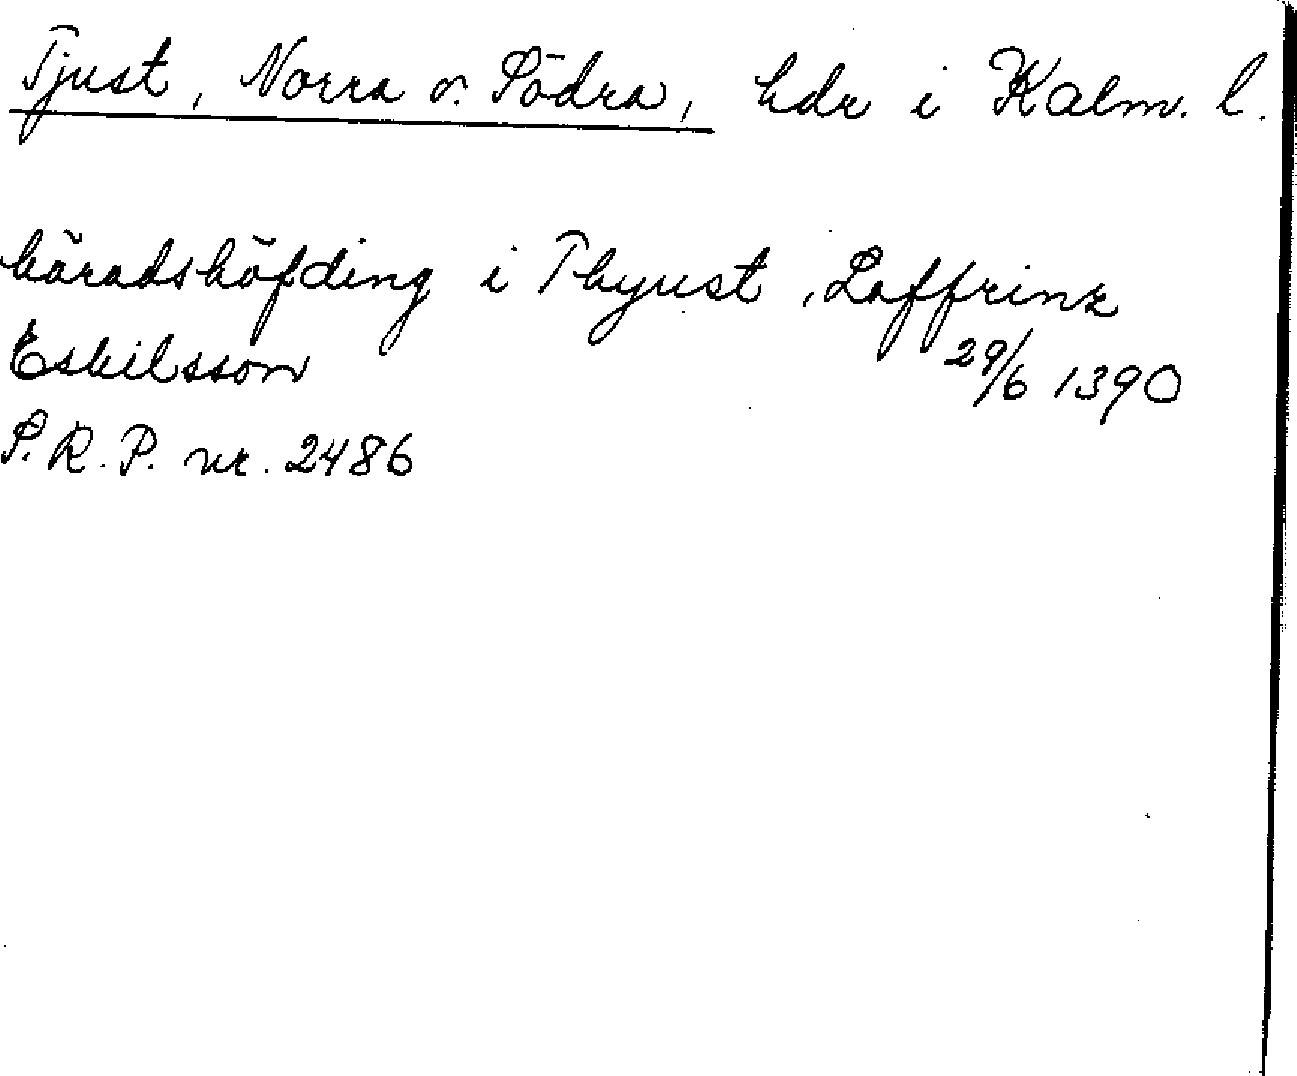 Tjust, Norra o. Södra, hdr i Kalm. l.
häradshöfding i Thyust, Laffrinz
Eskilsson 29/6 1390
S.R.P. nr. 2486